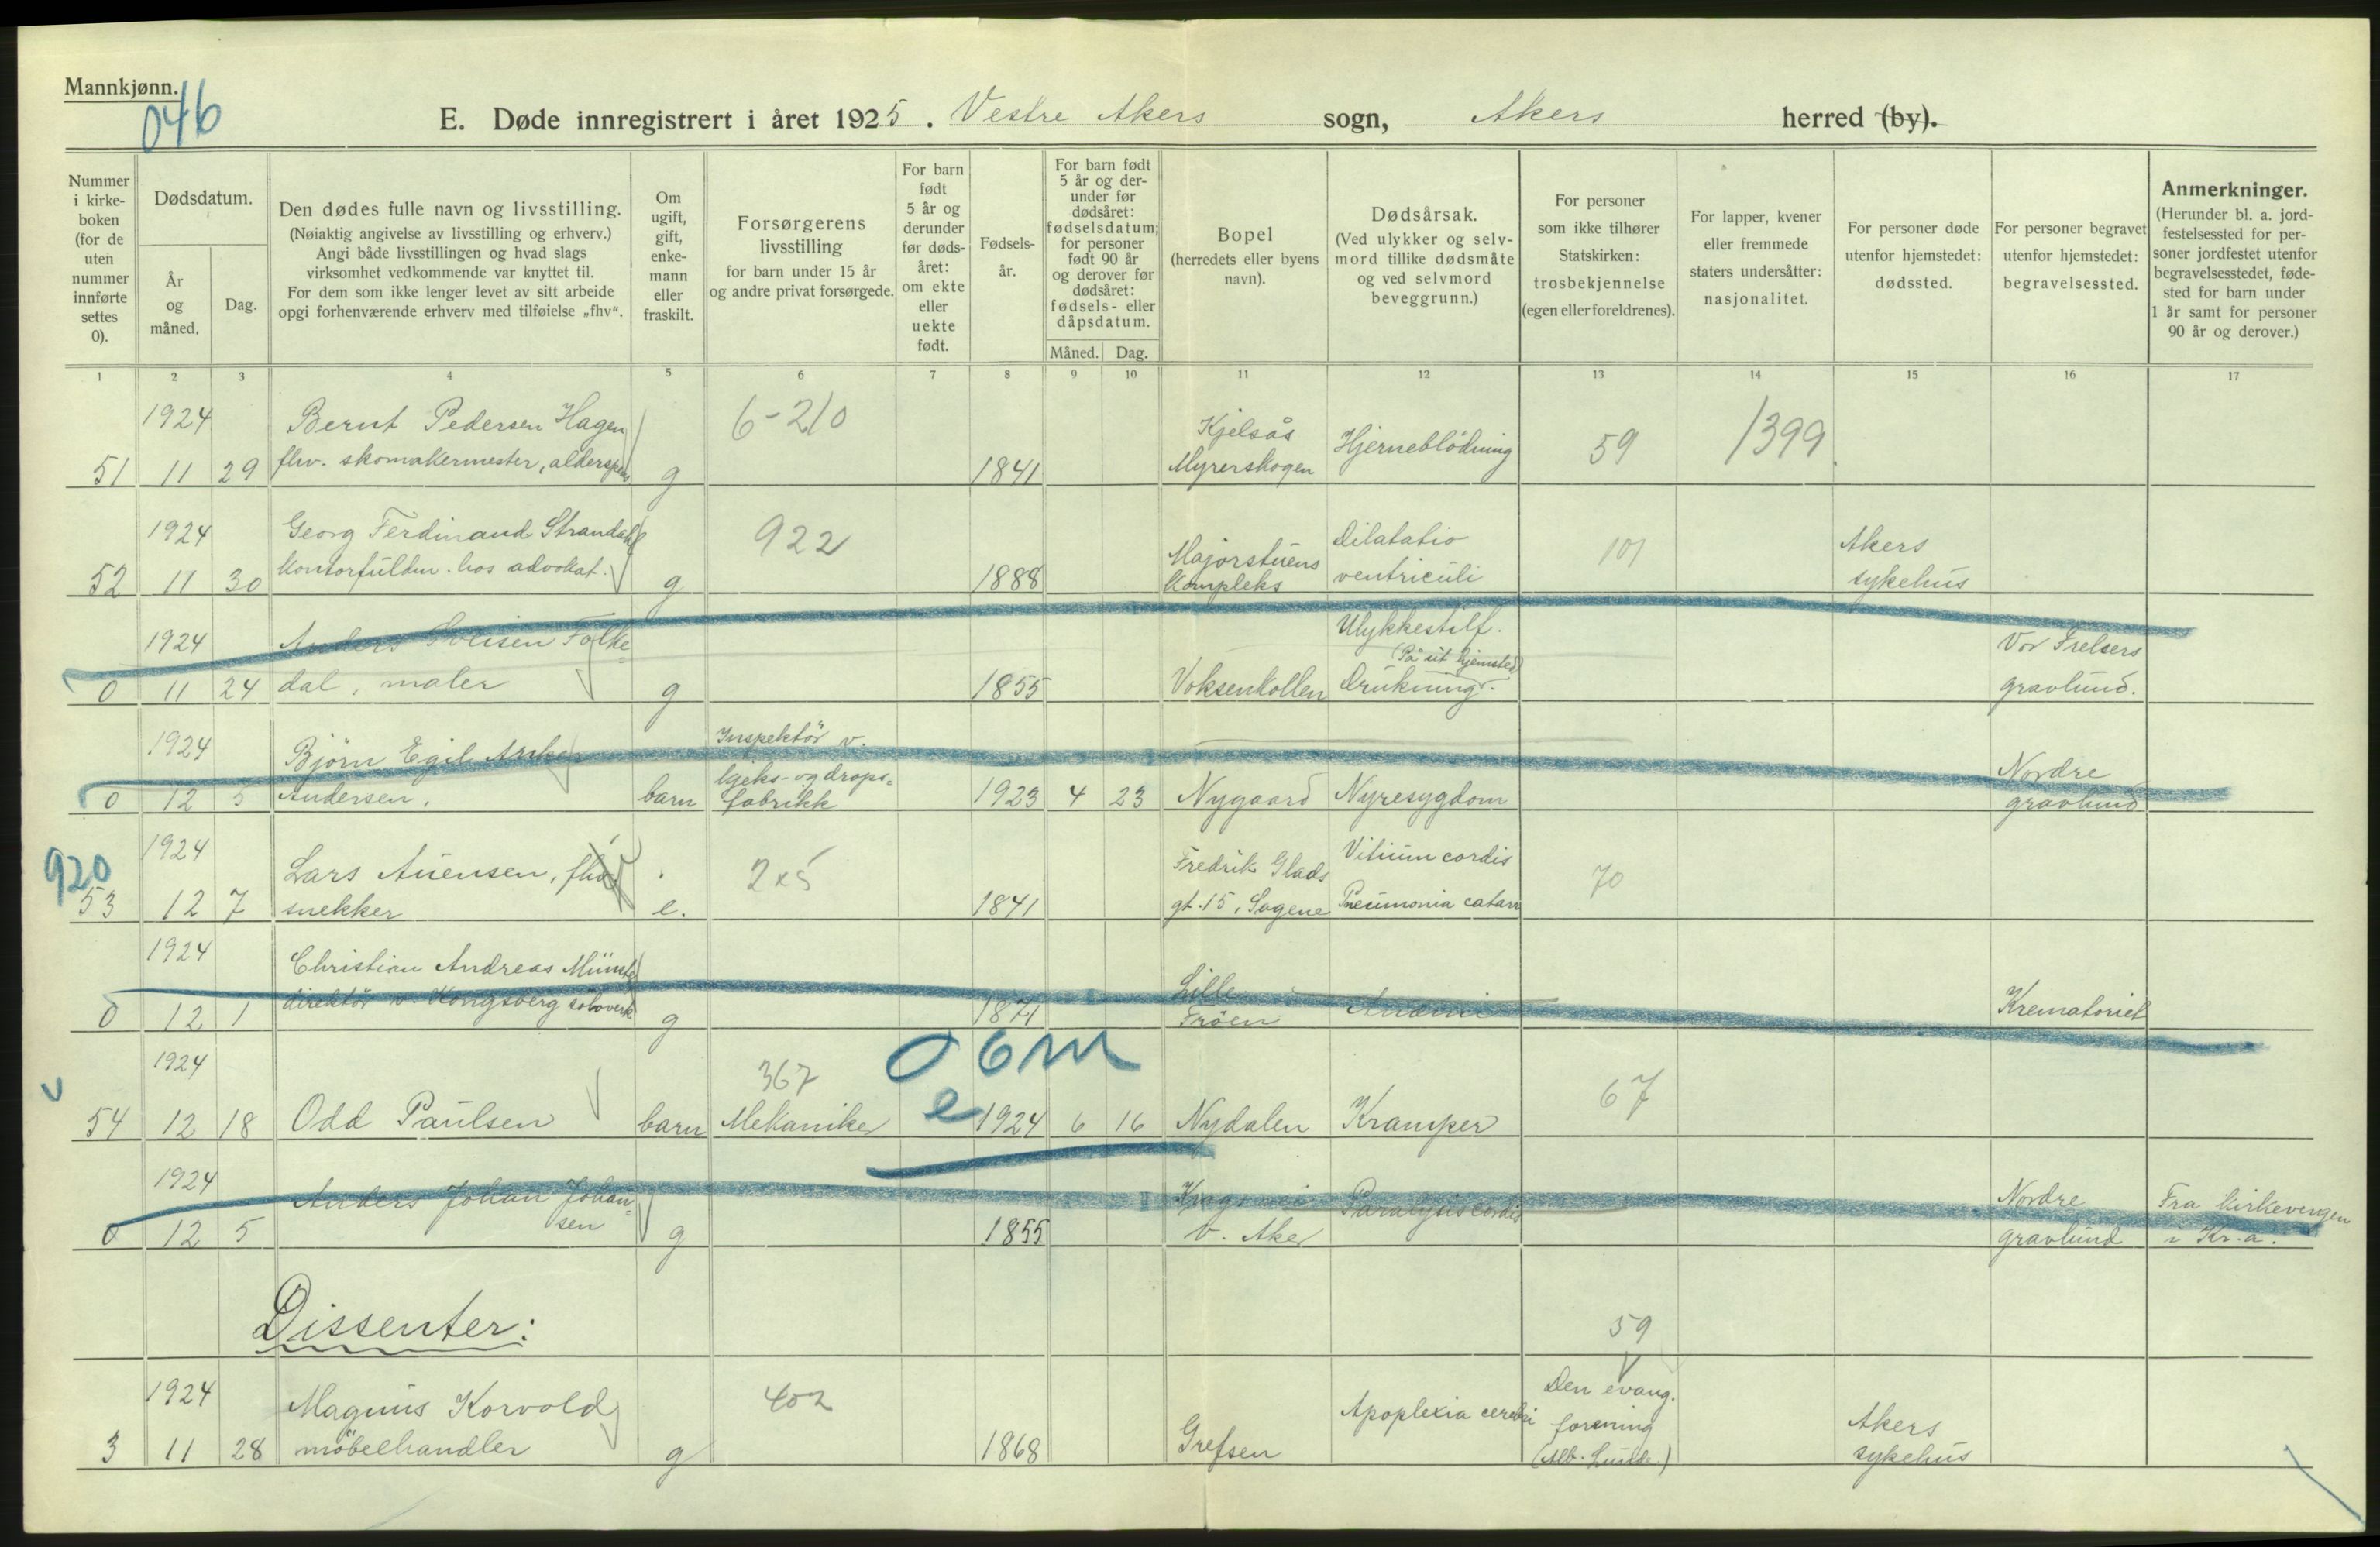 Mannkjønn.
046
E. Døde innregistrert i året 1925. Vestre Akers sogn, Akers herred (by).
Nummer i kirke-boken (for de uten nummer innførte settes 0).
Dødsdatum.
År og måned.
Dag.
Den dødes fulle navn og livsstilling.
(Nøiaktig angivelse av livsstilling og erhverv.)
Angi både livsstillingen og hvad slags
virksomhet vedkommende var knyttet til.
For dem som ikke lenger levet av sitt arbeide
opgi forhenværende erhverv med tilføielse „fhv“.
Om ugift, gift, enke-mann eller fraskilt.
Forsørgerens livsstilling
for barn under 15 år
og andre privat forsørgede.
For barn født 5 år og derunder før døds-året: om ekte eller uekte født.
Fødsels-år.
For barn født 5 år og der-under før dødsåret: fødselsdatum; for personer født 90 år og derover før dødsåret: fødsels- eller dåpsdatum.
Måned. Dag.
Bopel
(herredets eller byens navn).
Dødsårsak.
(Ved ulykker og selv-mord tillike dødsmåte og ved selvmord beveggrunn.)
For personer som ikke tilhører Statskirken: trosbekjennelse (egen eller foreldrenes).
For lapper, kvener eller fremmede staters undersåtter: nasjonalitet.
For personer døde utenfor hjemstedet: dødssted.
For personer begravet utenfor hjemstedet: begravelsessted.
Anmerkninger.
(Herunder bl. a. jord-festelsessted for per-soner jordfestet utenfor begravelsesstedet, føde-sted for barn under 1 år samt for personer 90 år og derover.)
1 2 3 4 5 6 7 8 9 10 11 12 13 14 15 16 17
1924 Bernt Pedersen Hagen 6-210 Kjelsås Hjerneblödning 59 1399
51 11 29 fhv. skomakermester, alderspen g 1841 Myrerskogen
1924 Georg Ferdinand Strandahl 922 Majorstuens Dilatatio 101 Akers
52 11 30 kontorfuldm. hos advokat. g 1888 kompleks ventriculi sykehus
1924 Anders Folke= Ulykkestilf. Vor Frelsers
(På sit hjemsted)
0 11 24 dal, maler g 1855 Voksenkollen Drukning. gravlund.
1924 Björn Egil Inspektör v. Nordre
kjeks- og drops=
0 12 5 Andersen. barn fabrikk 1923 4 23 Nygaard Nyresygdom gravlund
920
1924 Lars Auensen, fhv. 2x5 Fredrik Glads Vitium cordis 70
53 12 7 snekker e. 1841 gt. 15, Sagene Pneumonia catarr
1924 Christian Andreas Münster Lille Krematoriet
0 12 1 direktör v. Kongsberg sölvverk g 1871 Fröen Anæmi
06m
1924 367 67
v 54 12 18 Odd Paulsen barn Mekaniker e 1924 6 16 Nydalen Kramper
1924 Anders Johan Johan= Paralysis cordis Nordre Fra kirkevergen
0 12 5 sen g 1855 V. Aker gravlund i Kr.a.
Dissenter:
59
1924 Magnus Korvold 402 Apoplexia cerebri Den evang. Akers
forening
3 11 28 möbelhandler g 1868 Grefsen (Alb. Lunde) sykehus